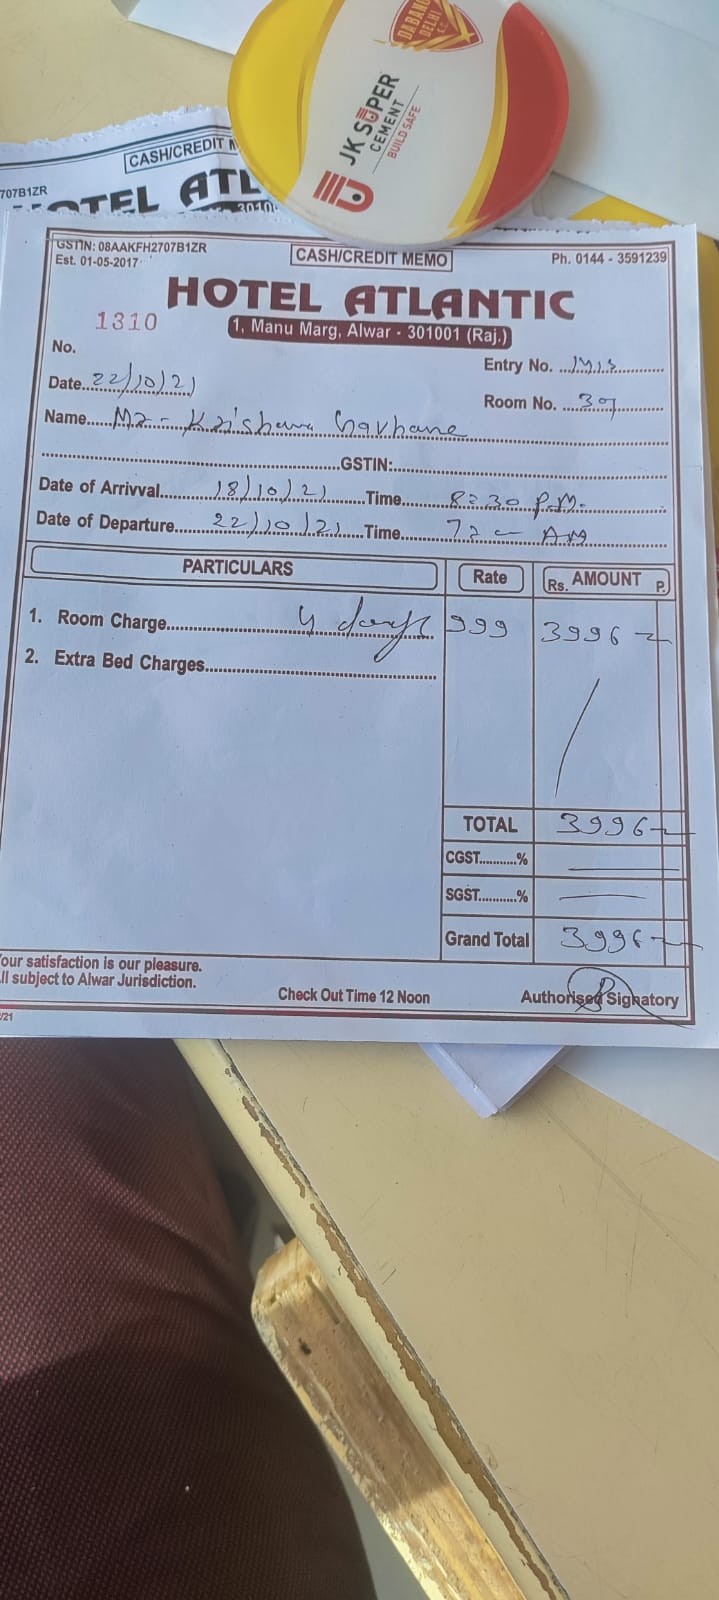 DABANG
DELHI
K.C.
JK SUPER
CEMENT
BUILD SAFE
CASH/CREDIT M
707B1ZR
OTEL ATL
3010
GSTIN: 08AAKFH2707B1ZR
CASH/CREDIT MEMO
Ph. 0144 - 3591239
Est. 01-05-2017
HOTEL ATLANTIC
1310
1, Manu Marg, Alwar - 301001 (Raj.)
No.
Entry No.
Date..22/10/21
Room No. ...307
Name.....Mr - Krishana
GSTIN:
Date of Arrivval.........18/10/21.......Time.......8:30 P.M.
Date of Departure.......22/10/21....Time....... AM
PARTICULARS Rate Rs. AMOUNT P.
1. Room Charge............4 days 999 3996
2. Extra Bed Charges
TOTAL 3996
CGST...........%
SGST...........%
Grand Total 3996
our satisfaction is our pleasure.
ll subject to Alwar Jurisdiction.
Check Out Time 12 Noon
Authorised Signatory
/21